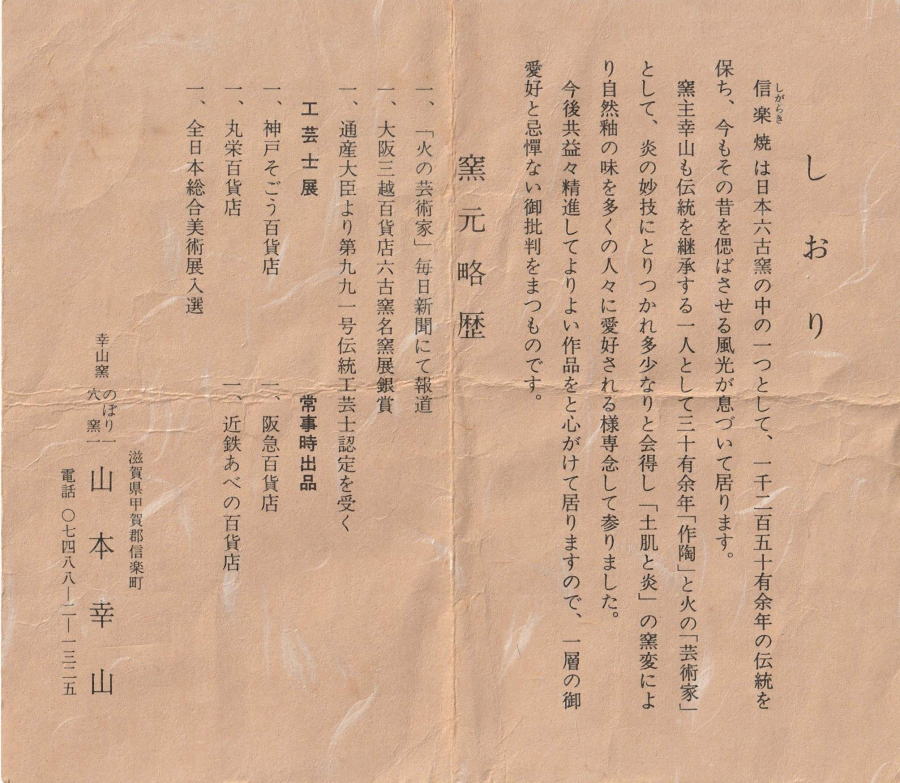 しおり
信楽焼は日本六古窯の中の一つとして、一千二百五十有余年の伝統を
しがらき
保ち、今もその昔を偲ばさせる風光が息づいて居ります。
窯主幸山も伝統を継承する一人として三十有余年「作陶」と火の「芸術家」
として、炎の妙技にとりつかれ多少なりと会得し「土肌と炎」の窯変によ
り自然釉の味を多くの人々に愛好される様専念して参りました。
今後共益々精進してよりよい作品をと心がけて居りますので、一層の御
愛好と忌憚ない御批判をまつものです。
窯元略歴
一、「火の芸術家」毎日新聞にて報道
一、大阪三越百貨店六古窯名窯展銀賞
一、通産大臣より第九九一号伝統工芸士認定を受く
工芸士展
常事時出品
一、神戸そごう百貨店
一、阪急百貨店
一、丸栄百貨店
一、近鉄あべの百貨店
一、全日本総合美術展入選
滋賀県甲賀郡信楽町
幸山窯
のぼり一
穴窯一
山本幸山
電話 〇七四八八―二―一三二五